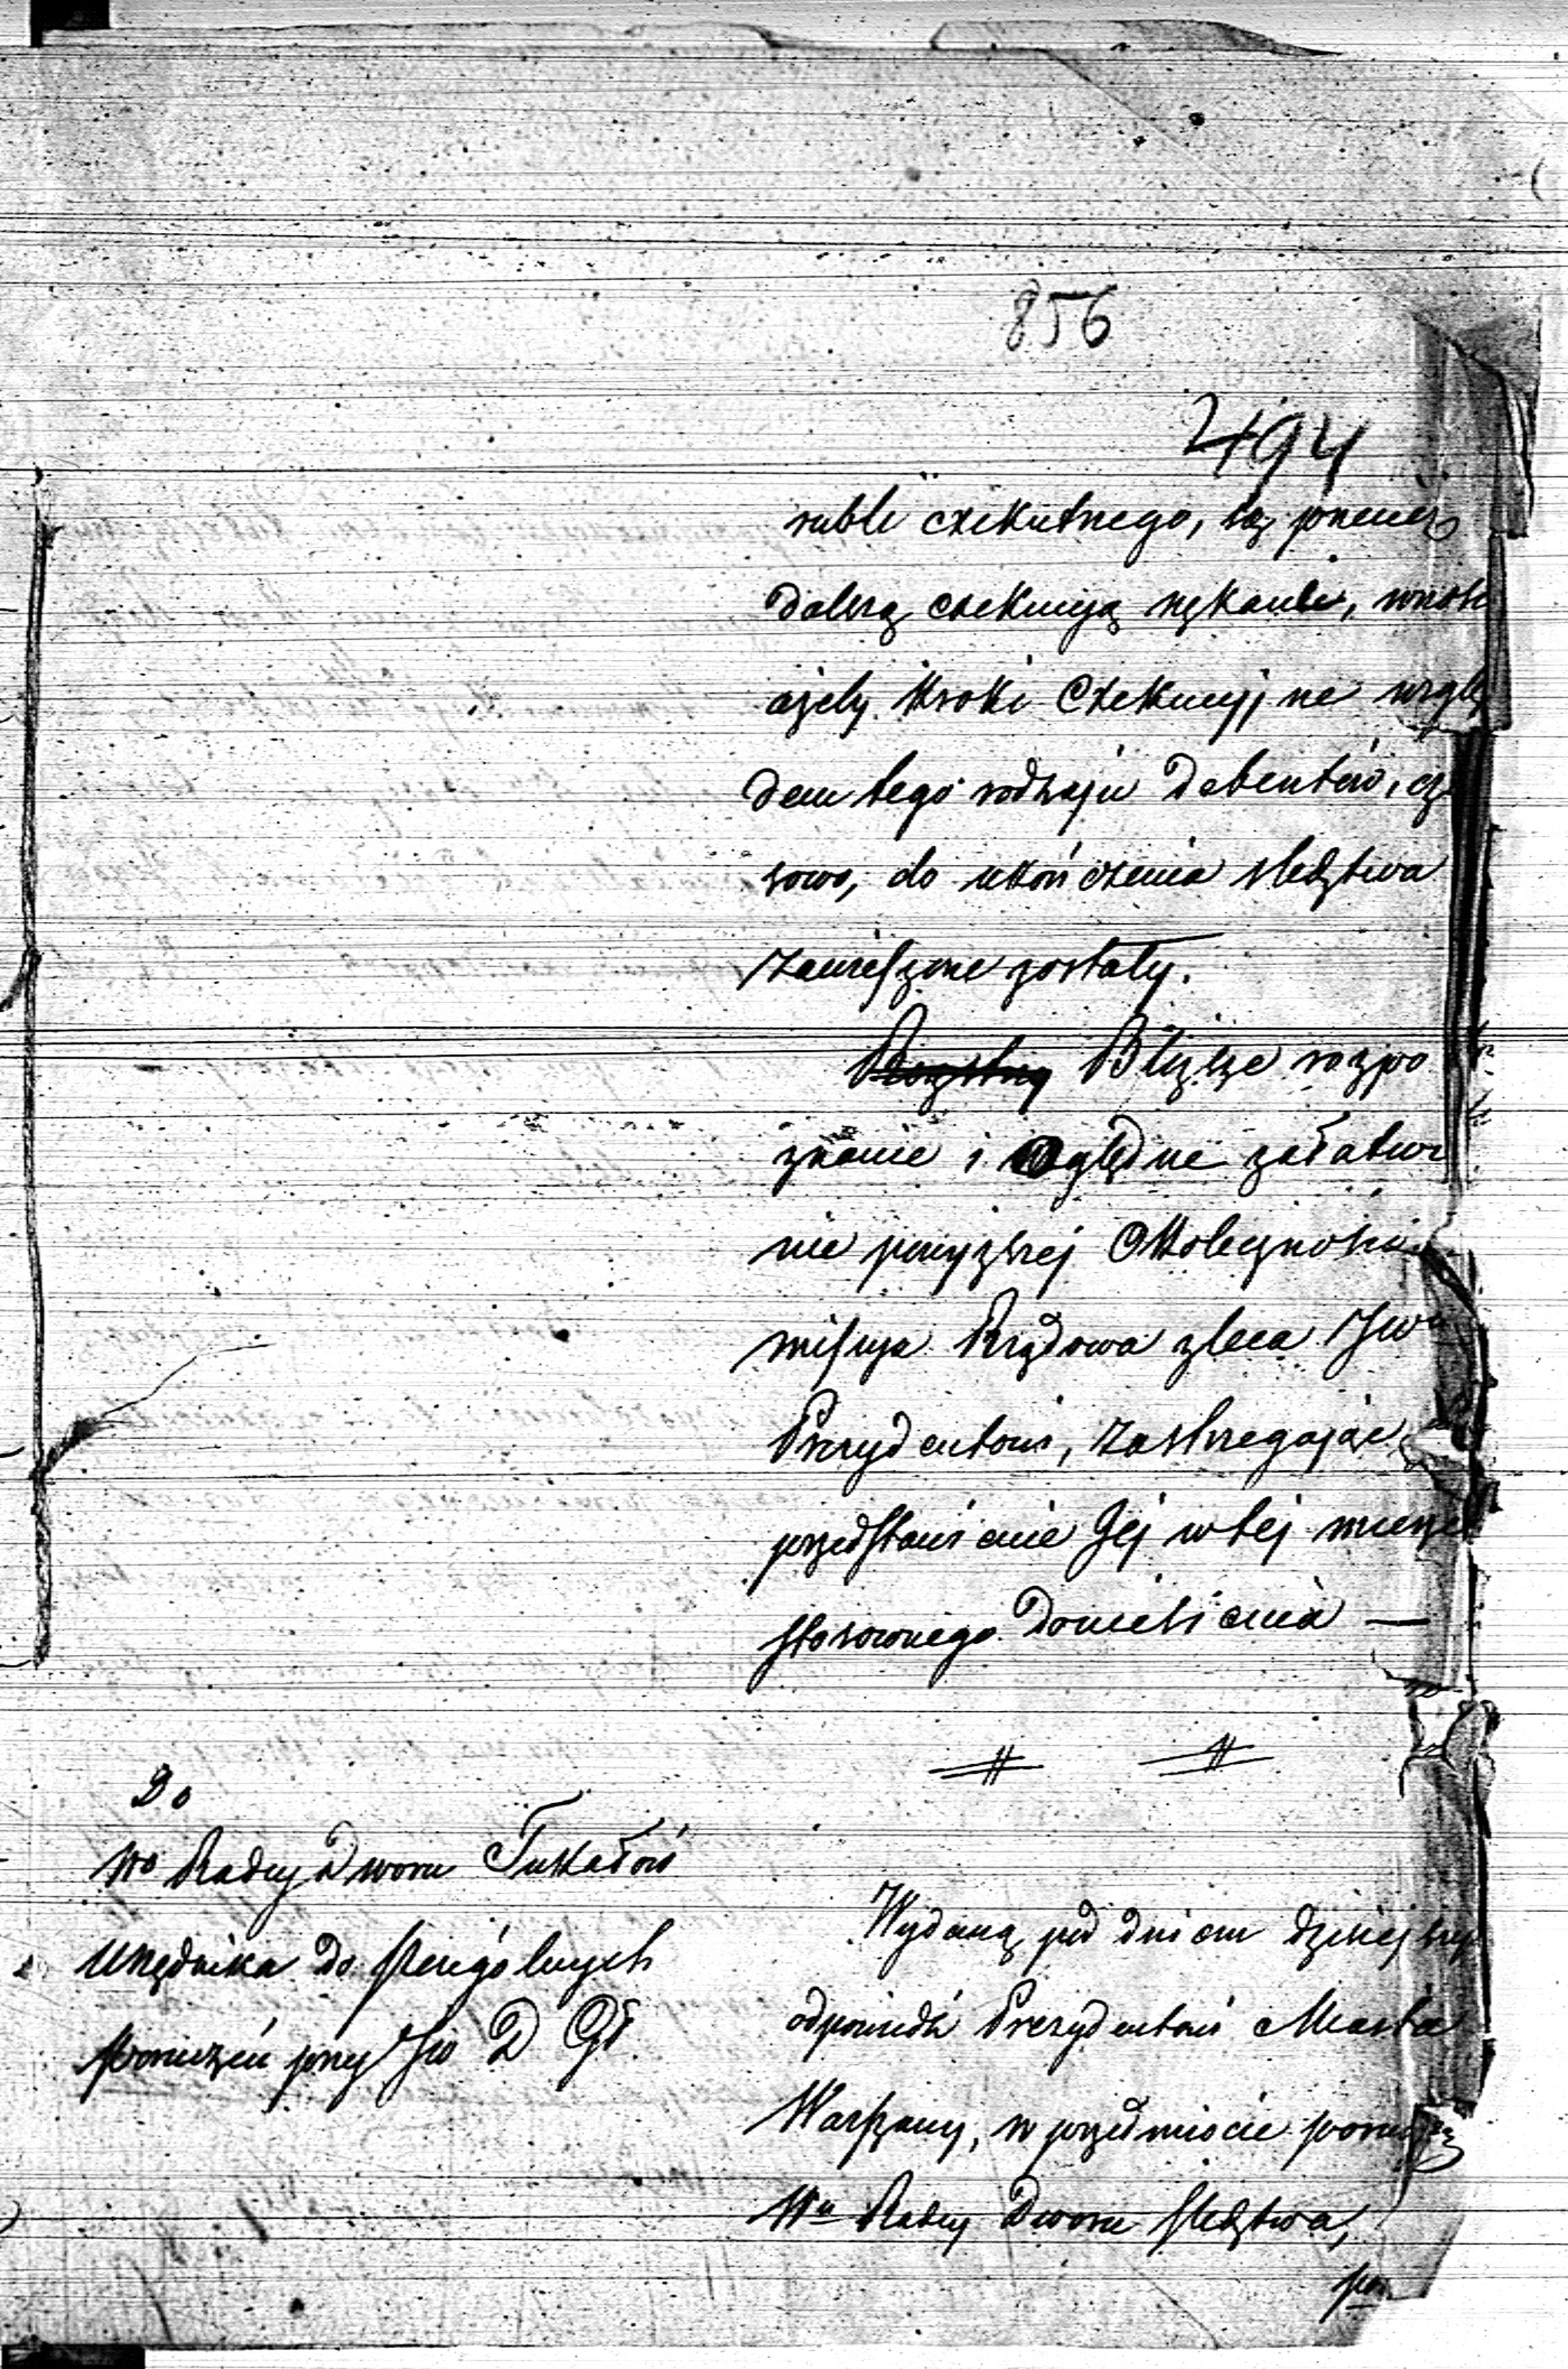 856
494
rubli exekutnego, są przez
dalszą exekucyą nękani,
ażeby kroki Exekucyjne wzglę
dem tego rodzaju Debentów, cza
sowo, do ukończenia śledztwa
zawieszone zostały.
Bliższe rozpo
znanie i oględne załatwie
nie powyższej Okoliczności
missya Rządowa zleca JWu
Prezydentowi, zastrzegając
przedstawienie Jej w tej mierze
stosownego Doniesienia —
Do
Wo Radcy Dworu Tukałło
Urzędnika do szczególnych
poruczeń przy Jw D Gł
Wydaną pod dniem dzisiejszym
odpowiedź Prezydentowi Miasta
Warszawy, w przedmiocie
Wu Radcy Dworu śledztwa,